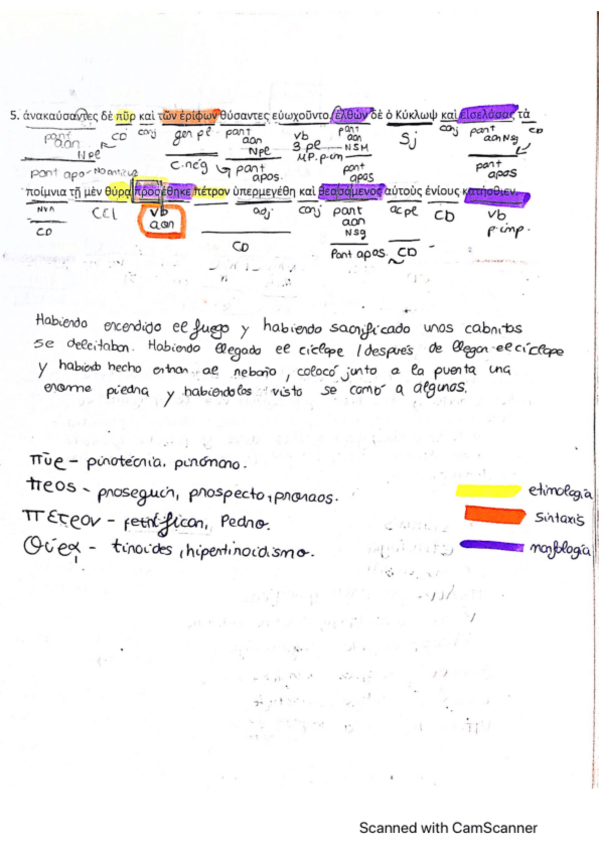 5. ἀνακαύσαντες δὲ πῦρ καὶ τῶν ἐρίφων θύσαντες εὐωχοῦντο. ἐλθὼν δὲ ὁ Κύκλωψ καὶ εἰσελάσας τὰ
part aon Npl CD conj gen pl part aon Npl vb 3 pl M.P. p.im part aon NSM Sj conj part aon NSg CD
part apo - Nominativo C. rég part apos. part apos part apos
ποίμνια τῇ μὲν θύρᾳ προσέθηκε πέτρον ὑπερμεγέθη καὶ θεασάμενος αὐτοὺς ἐνίους κατήσθιεν.
CD CCL vb aon adj conj part aon NSg ac pl CD vb p.imp.
CD Part apos. CD
Habiendo encendido el fuego y habiendo sacrificado unos cabritos
se deleitaban. Habiendo llegado el cíclope / después de llegar el cíclope
y habiendo hecho entrar al rebaño, colocó junto a la puerta una
enorme piedra y habiéndolos visto se comió a algunos.
πῦρ - pirotecnia, pirómano.
προς - proseguir, prospecto, pronaos.
πέτρον - petrificar, Pedro.
θύρᾳ - tiroides, hipertiroidismo.
etimología
sintaxis
morfología
Scanned with CamScanner